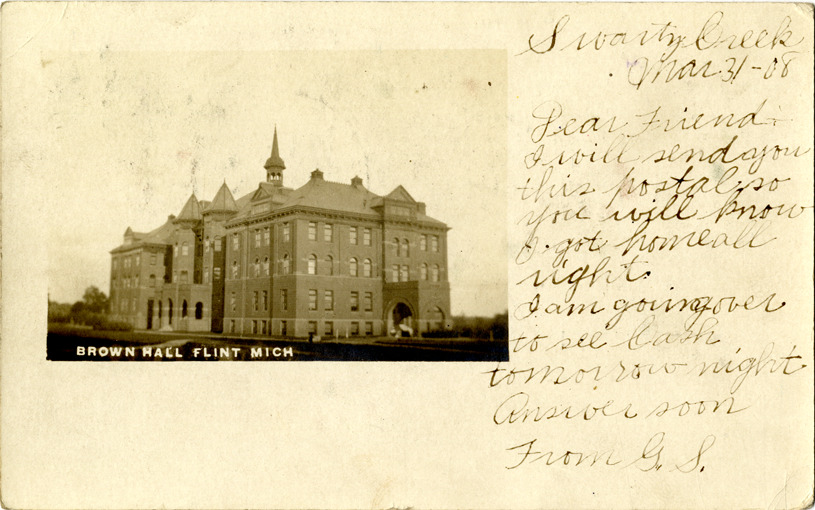 Swartz Creek
Mar 31-08
Dear Friend:
I will send you
this postal so
you will know
I got home all
right.
I am going over
to see Cash
tomorrow night
Answer soon
From G. S.
BROWN HALL FLINT MICH